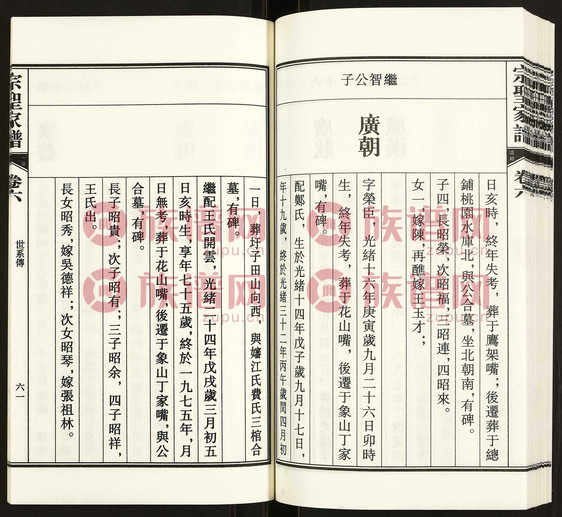 宗聖家譜
卷六
日亥時，終年失考，葬于鷹架嘴；後遷葬于總
鋪桃園水庫北，與公合墓，坐北朝南，有碑。
子四：長昭榮，次昭福，三昭連，四昭來。
女一，嫁陳，再醮嫁王玉才；
繼智公子
廣朝
字榮臣，光緒十六年庚寅歲九月二十六日卯時
生，終年失考，葬于花山嘴，後遷于象山丁家
嘴，有碑。
配鄭氏，生於光緒十四年戊子歲九月十七日，
年十九歲，終於光緒三十二年丙午歲閏四月初
一日，葬圩子田山向西，與嬸江氏費氏三棺合
墓，有碑。
繼配王氏開雲，光緒二十四年戊戌歲三月初五
日亥時生，享年七十五歲，終於一九七五年，月
日無考，葬于花山嘴，後遷于象山丁家嘴，與公
合墓，有碑。
長子昭貴；次子昭有；三子昭余，四子昭祥，
王氏出。
長女昭秀，嫁吳德祥；次女昭琴，嫁張祖林。
宗聖家譜
卷六
世系傳
六一
族谱网
zupu.cn
族谱网
zupu.cn